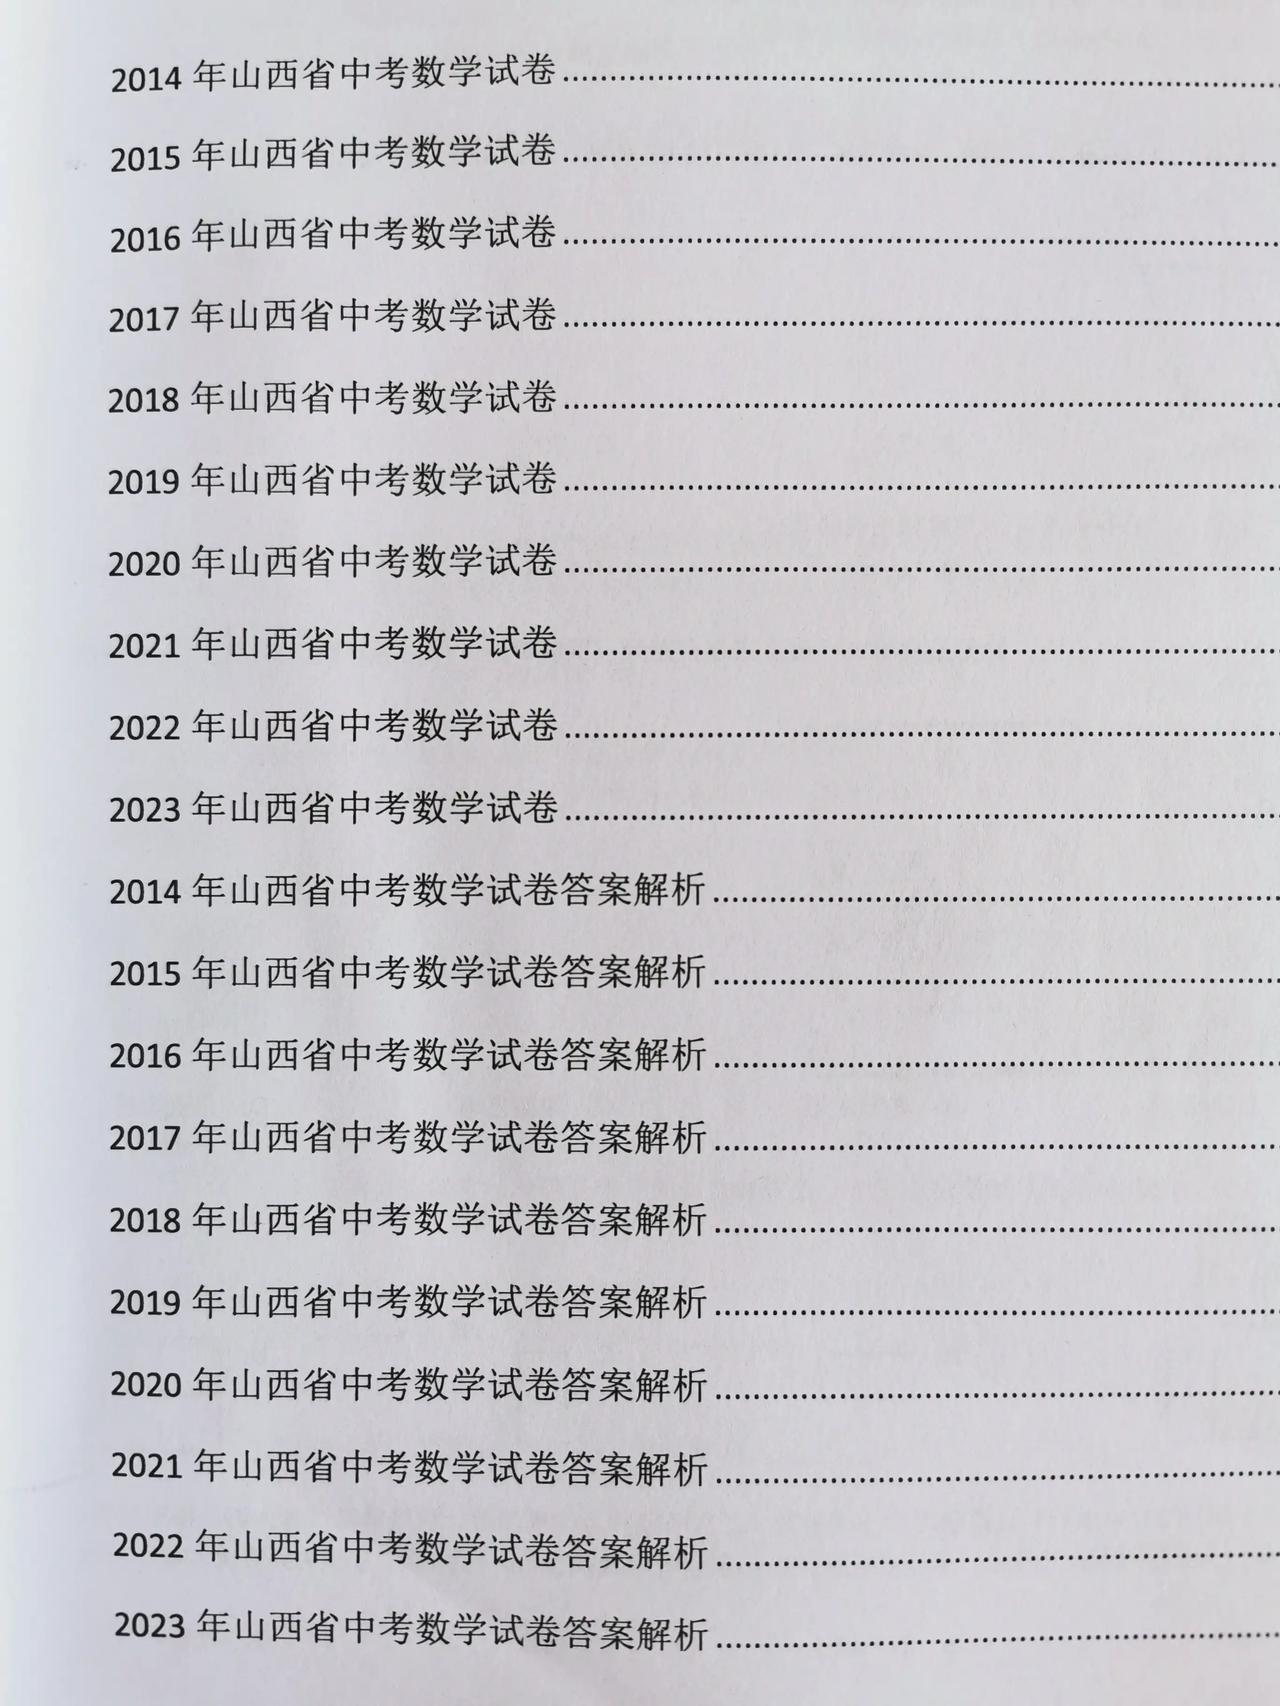 2014 年山西省中考数学试卷
2015 年山西省中考数学试卷
2016 年山西省中考数学试卷
2017 年山西省中考数学试卷
2018 年山西省中考数学试卷
2019 年山西省中考数学试卷
2020 年山西省中考数学试卷
2021 年山西省中考数学试卷
2022 年山西省中考数学试卷
2023 年山西省中考数学试卷
2014 年山西省中考数学试卷答案解析
2015 年山西省中考数学试卷答案解析
2016 年山西省中考数学试卷答案解析
2017 年山西省中考数学试卷答案解析
2018 年山西省中考数学试卷答案解析
2019 年山西省中考数学试卷答案解析
2020 年山西省中考数学试卷答案解析
2021 年山西省中考数学试卷答案解析
2022 年山西省中考数学试卷答案解析
2023 年山西省中考数学试卷答案解析